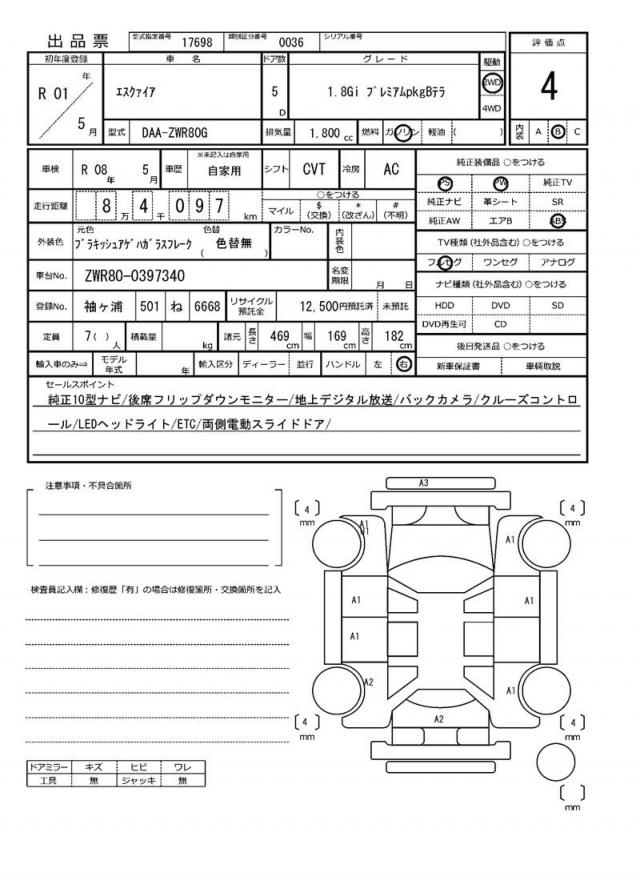 出品票 型式指定番号 17698 類別区分番号 0036 シリアル番号
初年度登録 車名 ドア数 グレード 駆動 評価点
R 01 年 5 月 エスクァイア 5 D 1.8Gi プレミアムpkgBﾃﾗ 2WD 4WD 4
型式 DAA-ZWR80G 排気量 1,800 cc 燃料 ガソリン 軽油 ( ) 内装 A B C
車検 R 08 年 5 月 車歴 ※未記入は自家用 自家用 シフト CVT 冷房 AC 純正装備品 ○をつける
PS PW 純正TV
走行距離 8 万 4 千 0 9 7 km ○をつける マイル $ (交換) * (改ざん) # (不明)
純正ナビ 革シート SR
純正AW エアB ABS
外装色 元色 ﾌﾞﾗｷｯｼｭｱｹﾞﾊｶﾞﾗｽﾌﾚｰｸ 色替 ( 色替無 ) カラーNo. 内装色
TV種類 (社外品含む) ○をつける
フルセグ ワンセグ アナログ
車台No. ZWR80-0397340 名変期限 月 日
ナビ種類 (社外品含む) ○をつける
登録No. 袖ヶ浦 501 ね 6668 リサイクル預託金 12,500円預託済 未預託
HDD DVD SD
DVD再生可 CD
定員 7( ) 人 積載量 kg 諸元 長さ 469 cm 幅 169 cm 高さ 182 cm
後日発送品 ○をつける
輸入車のみ⇒ モデル年式 年 輸入区分 ディーラー 並行 ハンドル 左 右
新車保証書 車輌取説
セールスポイント
純正10型ナビ/後席フリップダウンモニター/地上デジタル放送/バックカメラ/クルーズコントロ
ール/LEDヘッドライト/ETC/両側電動スライドドア/
注意事項・不具合箇所
検査員記入欄：修復歴「有」の場合は修復箇所・交換箇所を記入
A3
〔 4 〕 mm
〔 4 〕 mm
A1
U1
A1
A1
A1
A1
A2
A1
A2
〔 4 〕 mm
〔 4 〕 mm
〔 〕 mm
ドアミラー キズ ヒビ ワレ
工具 無 ジャッキ 無